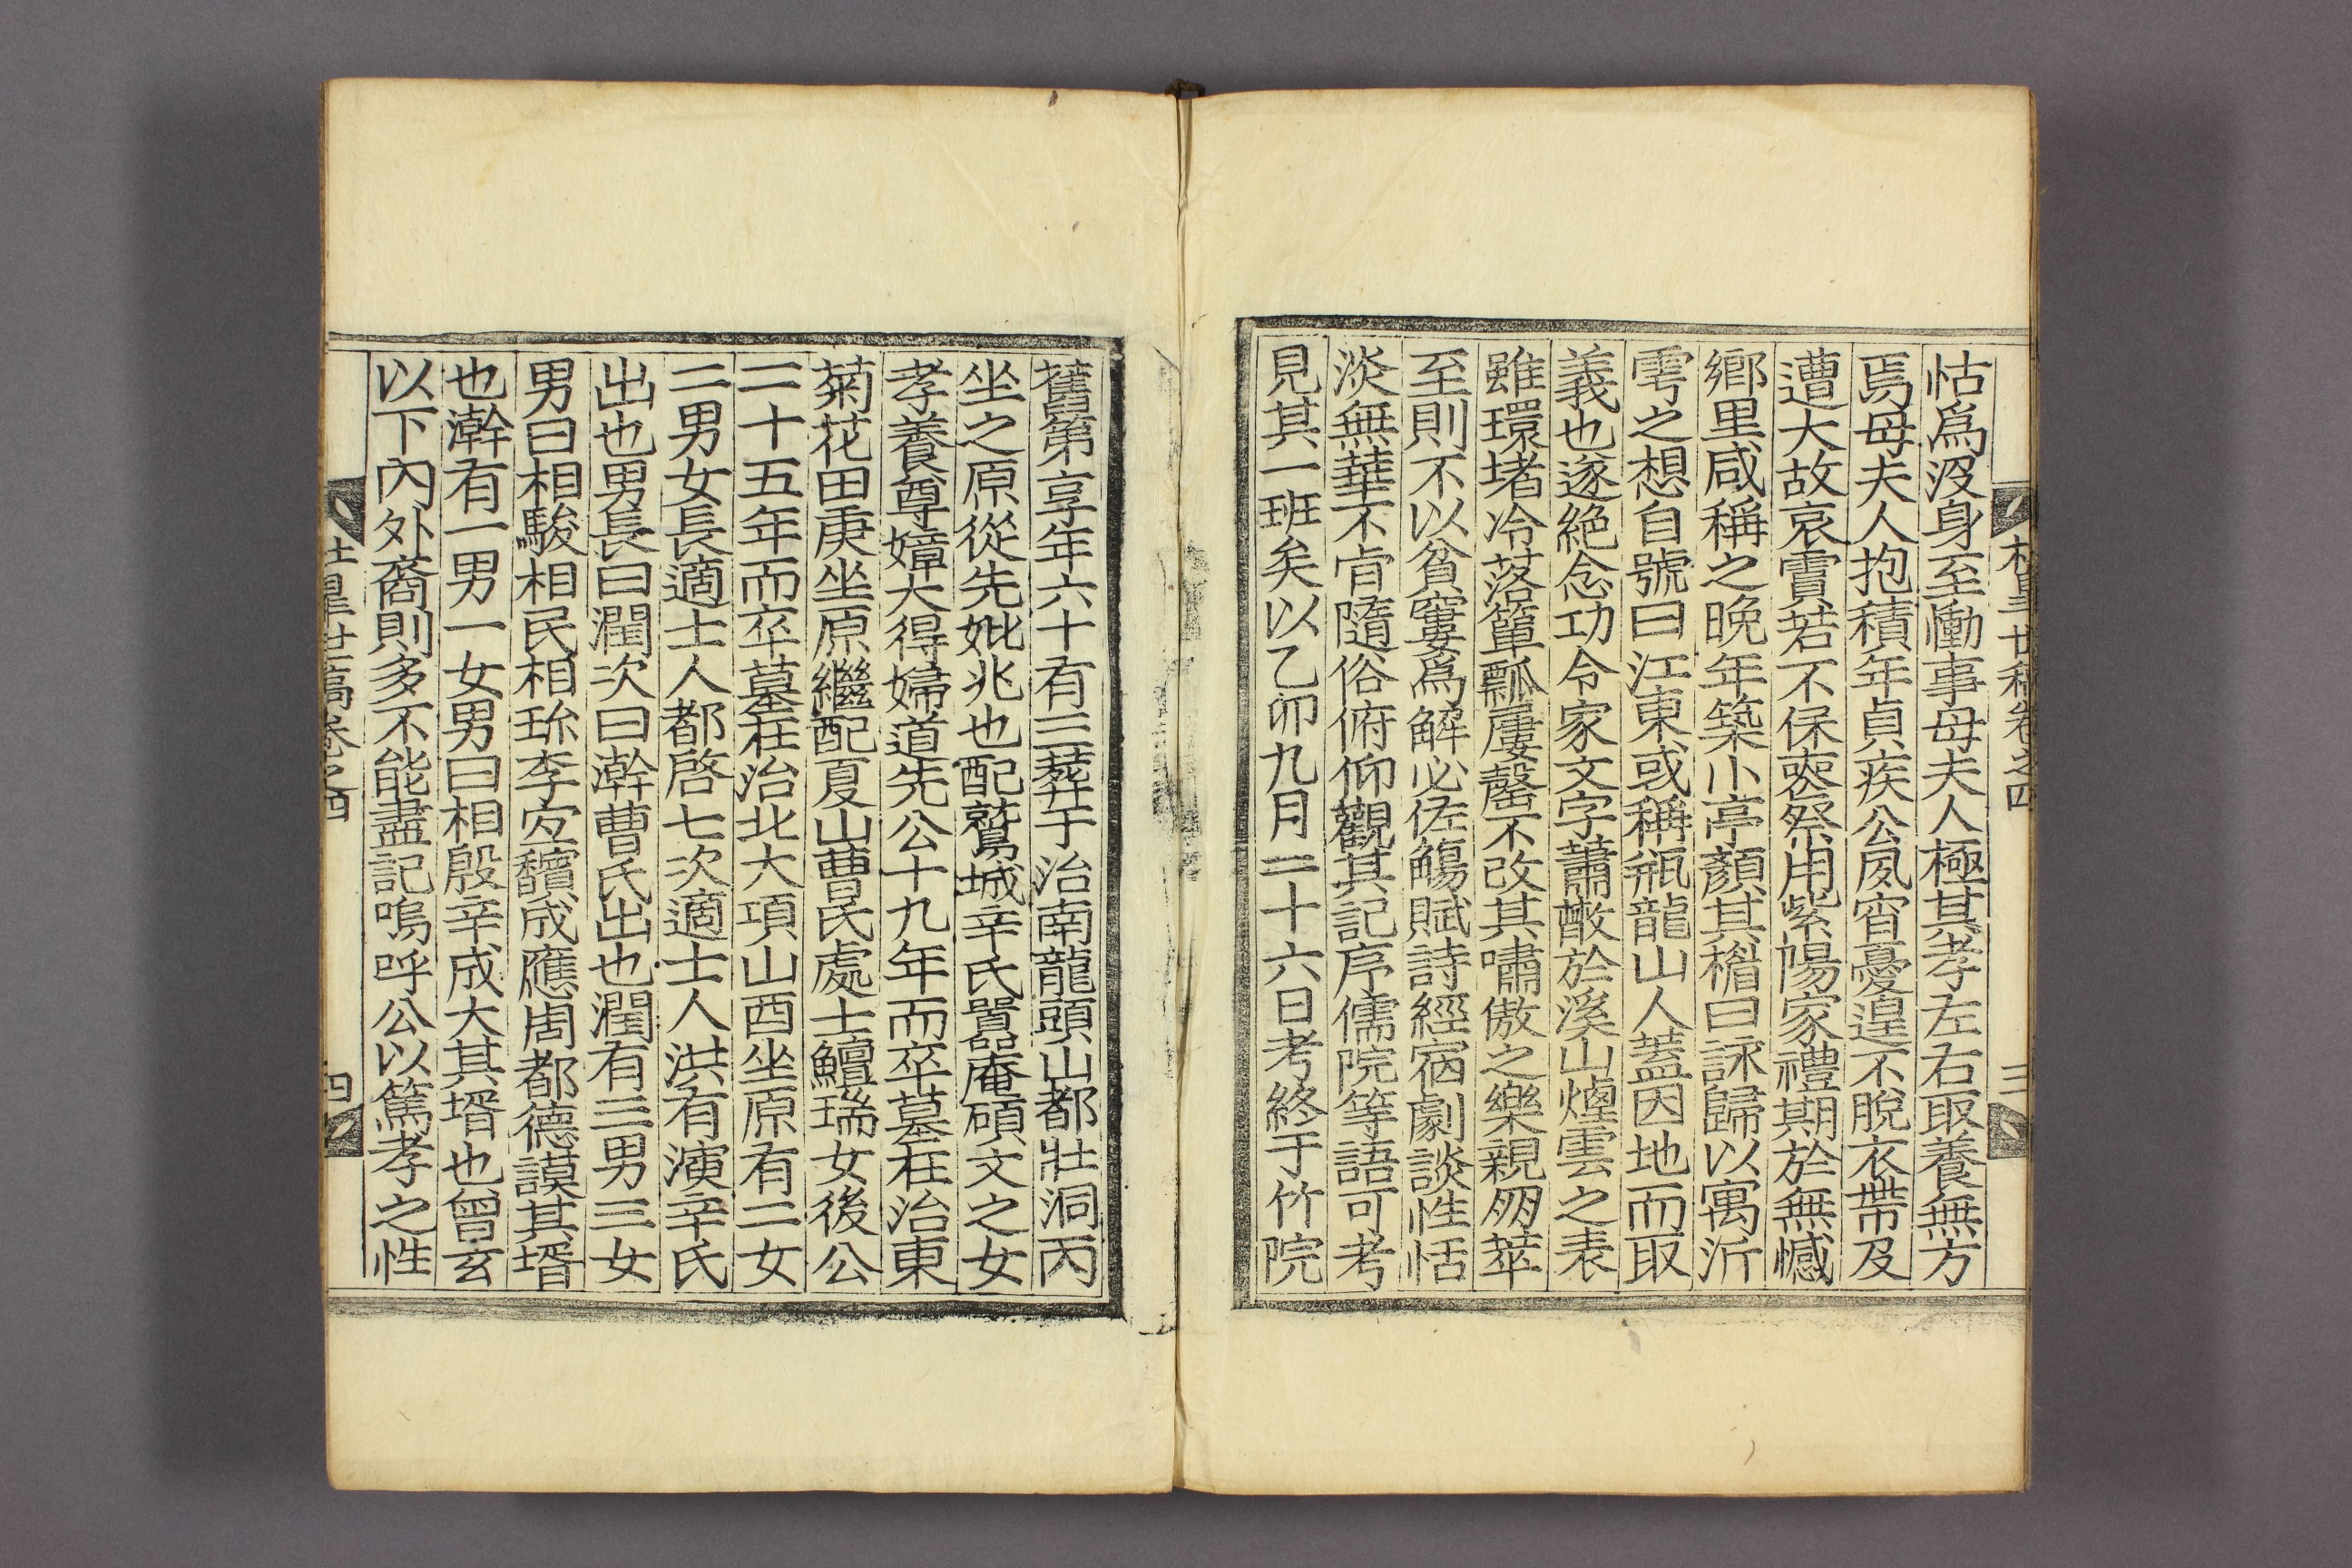 怙爲沒身至慟事母夫人極其孝左右取養無方
焉母夫人抱積年貞疾公夙宵憂遑不脫衣帶及
遭大故哀霣若不保喪祭用紫陽家禮期於無憾
鄉里咸稱之晩年築小亭顏其楣曰詠歸以寓沂
雩之想自號曰江東或稱甁龍山人蓋因地而取
義也遂絶念功令家文字蕭散於溪山煙雲之表
雖環堵冷落簞瓢屢罄不改其嘯傲之樂親朋萃
至則不以貧窶爲解必佐觴賦詩經宿劇談性恬
淡無華不肯隨俗俯仰觀其記序儒院等語可考
見其一班矣以乙卯九月二十六日考終于竹院
舊第享年六十有三葬于治南龍頭山都壯洞丙
坐之原從先妣兆也配鷲城辛氏嚚庵碩文之女
孝養尊嫜大得婦道先公十九年而卒墓在治東
菊花田庚坐原繼配夏山曹氏處士鱣瑞女後公
二十五年而卒墓在治北大項山酉坐原有二女
二男女長適士人都啓七次適士人洪有演辛氏
出也男長曰潤次曰澣曹氏出也潤有三男三女
男曰相駿相民相珎李寅馩成應周都德謨其壻
也澣有一男一女男曰相殷辛成大其壻也曾玄
以下內外裔則多不能盡記嗚呼公以篤孝之性
卷之四 三
世稿卷之四 四